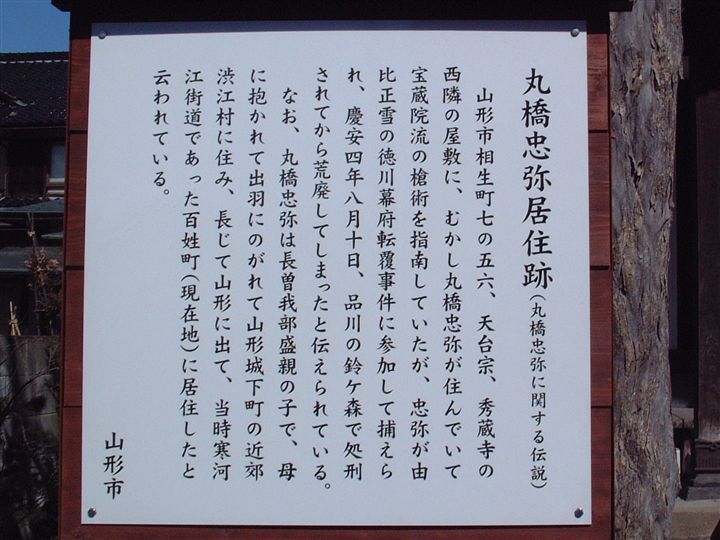 丸橋忠弥居住跡(丸橋忠弥に関する伝説)
山形市相生町七の五六、天台宗、秀蔵寺の
西隣の屋敷に、むかし丸橋忠弥が住んでいて
宝蔵院流の槍術を指南していたが、忠弥が由
比正雪の徳川幕府転覆事件に参加して捕えら
れ、慶安四年八月十日、品川の鈴ケ森で処刑
されてから荒廃してしまったと伝えられている。
なお、丸橋忠弥は長曽我部盛親の子で、母
に抱かれて出羽にのがれて山形城下町の近郊
渋江村に住み、長じて山形に出て、当時寒河
江街道であった百姓町(現在地)に居住したと
云われている。
山形市